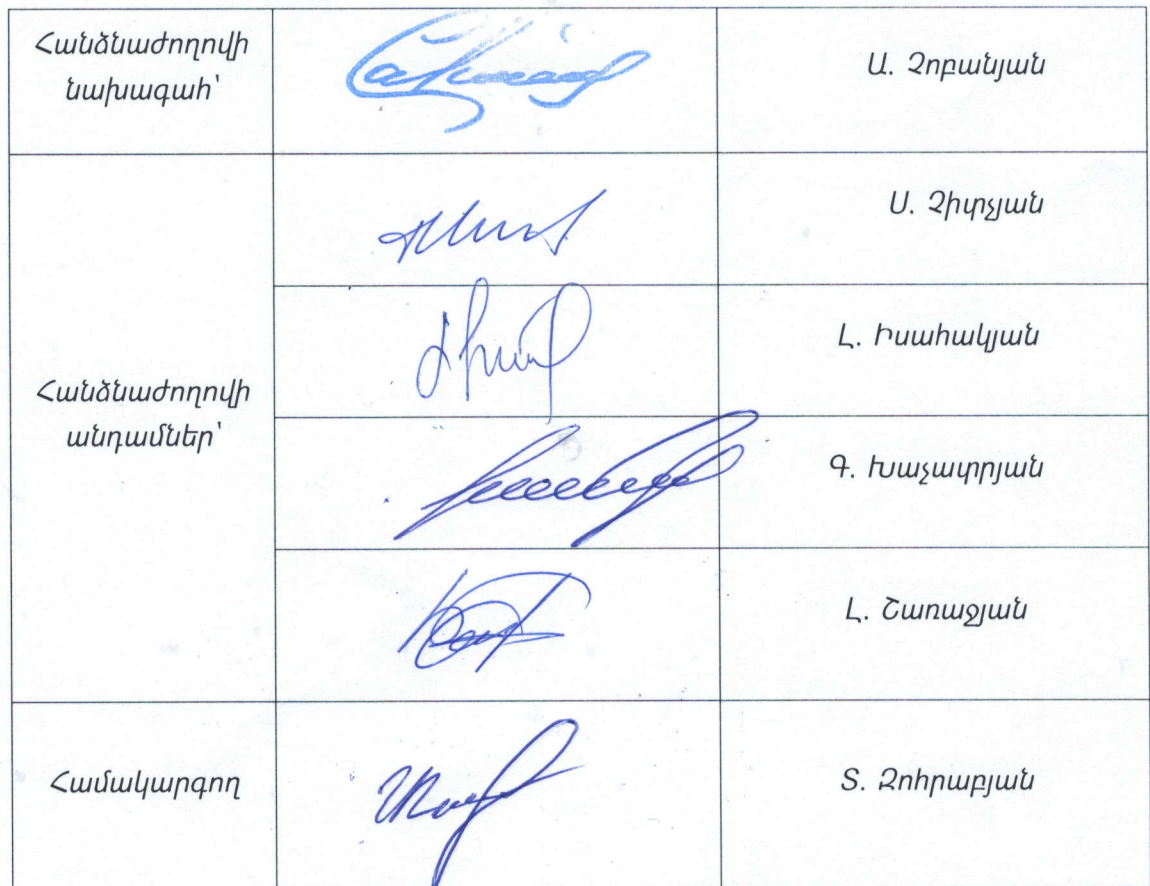 Հանձնաժողովի
նախագահ՝
Ա. Չոբանյան
Հանձնաժողովի
անդամներ՝
Ս. Չիւրչյան
Լ. Իսահակյան
Գ. Խաչատրյան
Լ. Շառաջյան
Համակարգող
Տ. Զոհրաբյան